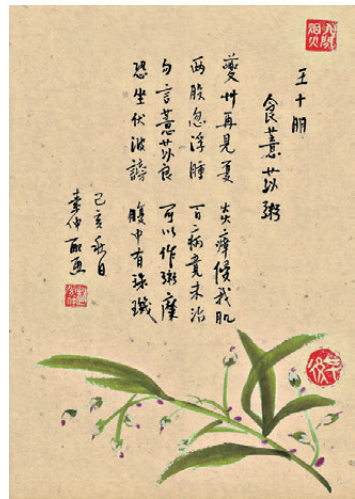 王十朋
食薏苡粥
夔州再見夏 炎瘴侵我肌
两股忽浮腫 百病竟未治
言薏苡良 可以作粥糜
恐坐伏波謗 腹中有珠璣
己亥秋日
仲画